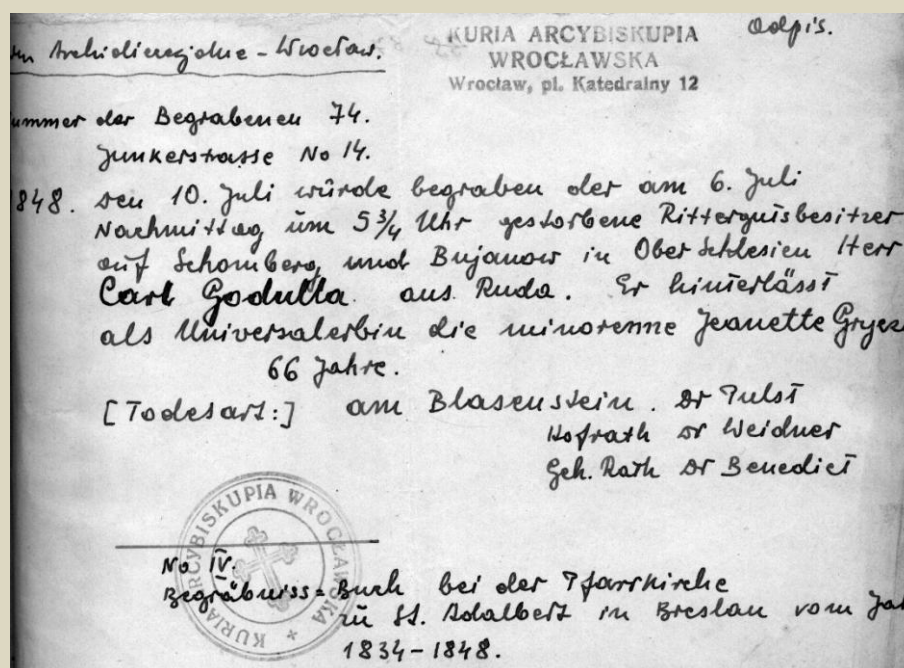 Archidiecezjalne - Wrocław.
KURIA ARCYBISKUPIA
WROCŁAWSKA
Wrocław, pl. Katedralny 12
Odpis.
ummer der Begrabenen 74.
Junkerstrasse No 14.
1848. den 10. Juli würde begraben der am 6. Juli
Nachmittag um 5 3/4 Uhr gestorbene Rittergutsbesitzer
auf Schomberg, und Bujanow in Ober Schlesien Herr
Carl Godulla aus Ruda. Er hinterlässt
als Universalerbin die minorenne Jeanette
66 Jahre.
[Todesart:] am Blasenstein. Dr Pulst
Hofrath Dr Weidner
Geh. Rath Dr Benedict
KURIA ARCYBISKUPIA WROCŁAWSKA
No IV.
Begräbniss = Buch bei der Pfarrkirche
zu St. Adalbert in Breslau vom Ja
1834-1848.